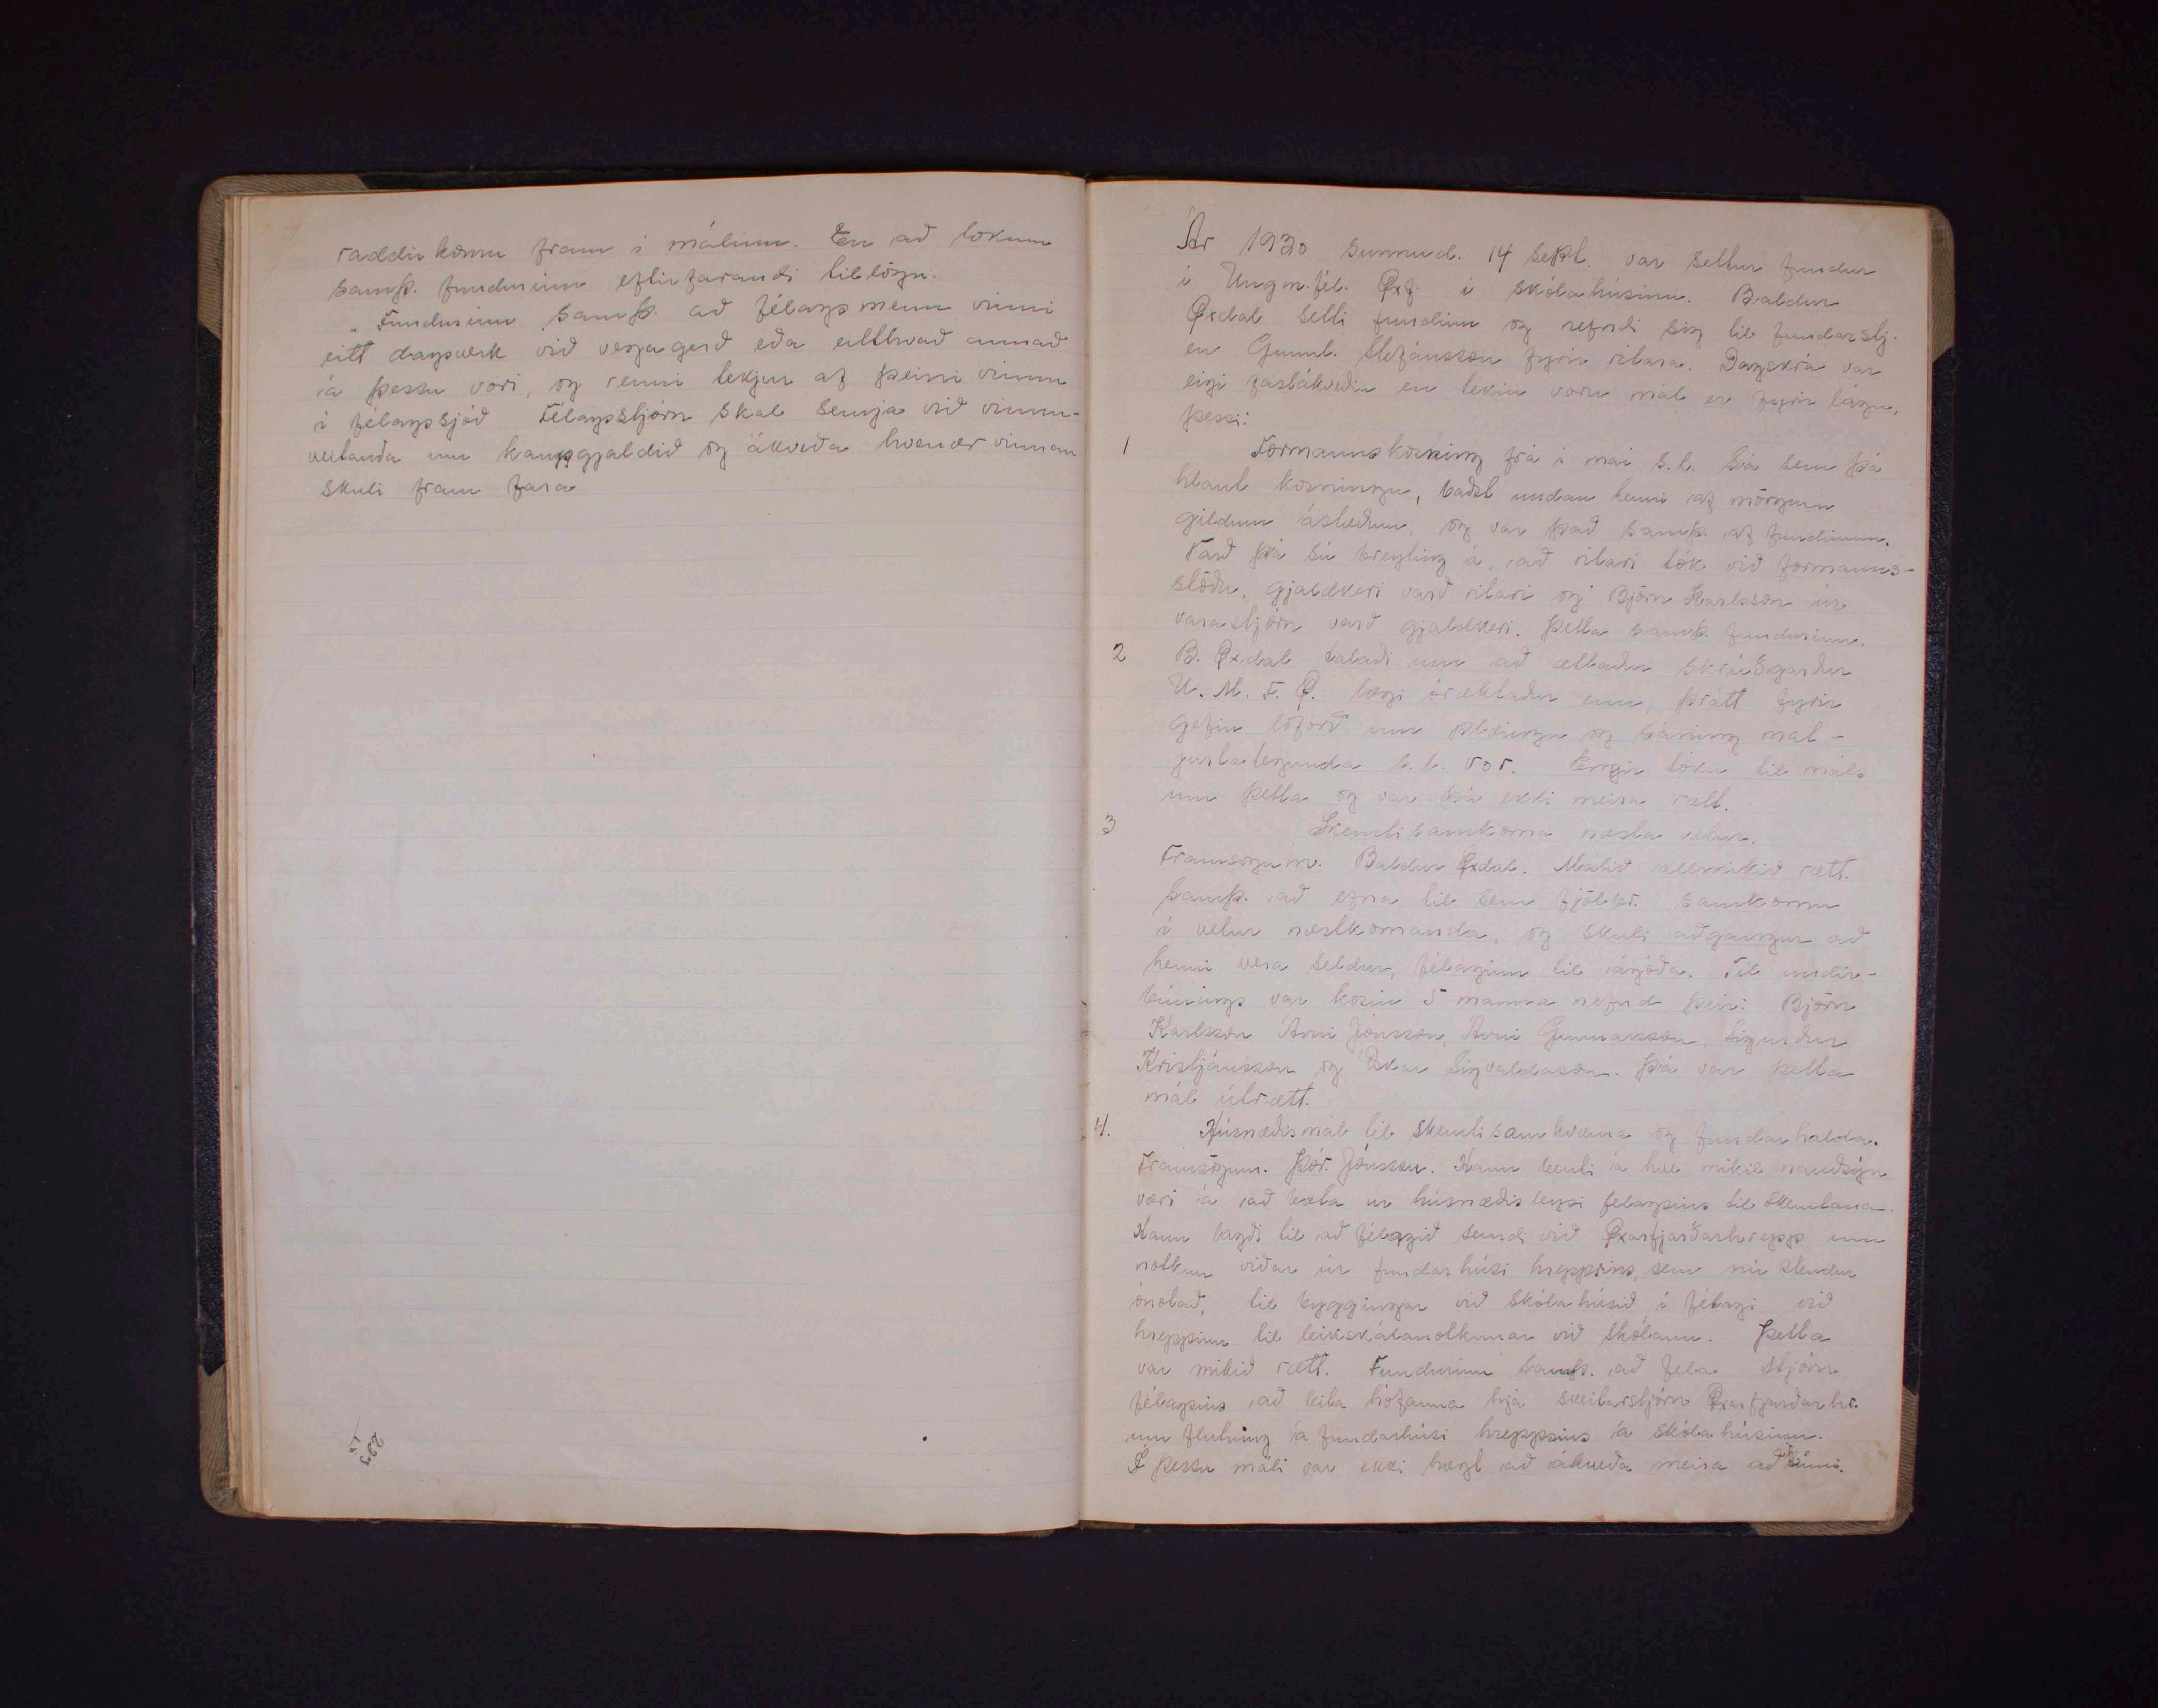 raddir komu fram í málinu. En að lokum
samþ. fundurinn eftirfarandi tillögu.
„Fundurinn samþ. að félagsmenn vinni
eitt dagsverk við vegagerð eða eitthvað annað
á þessu vori, og renni tekjur af þeirri vinnu
í félagssjóð Félagsstjórn skal semja við vinnu-
veitanda um kaupgjaldið og ákveða hvenær vinnan
skuli fram fara
Ár 1930 Sunnud. 14 Sept. var settur fundur
í Ungm.fél. Øxf. í skólahúsinu. Baldur
Øxdal setti fundinn og nefndi sig til fundarstj.
en Gunnl. Stefánsson fyrir ritara. Dagskrá var
eigi fastákveðin en tekin voru mál er fyrir lágu,
þessi:
1 Formannskosning frá í maí s.l. Sá sem þá
hlaut kosningu, baðst undan henni af mörgum
gildum ástæðum, og var það samþ. af fundinum.
Varð þá sú breyting á, að ritari tók við formanns-
stöðu, gjaldkeri varð ritari og Björn Karlsson úr
varastjórn varð gjaldkeri. Þetta samþ. fundurinn.
2 B. Øxdal talaði um að ætlaður skrúðgarður
U. M. F. Ø. lægi óræktaður enn, þrátt fyrir
gefin loforð um plægingu og sáning mat-
jurtategunda s.l. vor. Engir tóku til máls
um þetta og var þá ekki meira rætt.
3 Skemtisamkoma næsta vetur.
Framsögum. Baldur Øxdal. Málið allmikið rætt.
Samþ. að efna til sem fjölbr. samkomu
á vetur næstkomanda, og skuli aðgangur að
henni vera seldur, félaginu til ágóða. Til undir-
búnings var kosin 5 manna nefnd þeir: Björn
Karlsson Árni Jónsson, Árni Gunnarsson, Sigurður
Kristjánsson og Óskar Sigvaldason. Þá var þetta
mál útrætt.
4. Húsnæðismál til skemtisamkvæma og fundarhalda.
Framsögum. Þór. Jónsson. Hann benti á hve mikil nauðsyn
væri á að bæta úr húsnæðisleysi felagsins til skemtana.
Hann lagði til að félagið semdi við Øxarfjarðarhrepp um
notkun viðar úr fundarhúsi hreppsins, sem nú stendur
ónotað, til byggingar við skólahúsið í félagi við
hreppinn til leikskálanotkunar við skólann. Þetta
var mikið rætt. Fundurinn samþ. að fela stjórn
félagsins, að leita hófanna hjá sveitarstjórn Øxarfjarðarhr.
um flutning á fundarhúsi hreppsins á skólahúsinu.
Í þessu máli var ekki hægt að ákveða meira að sinni.